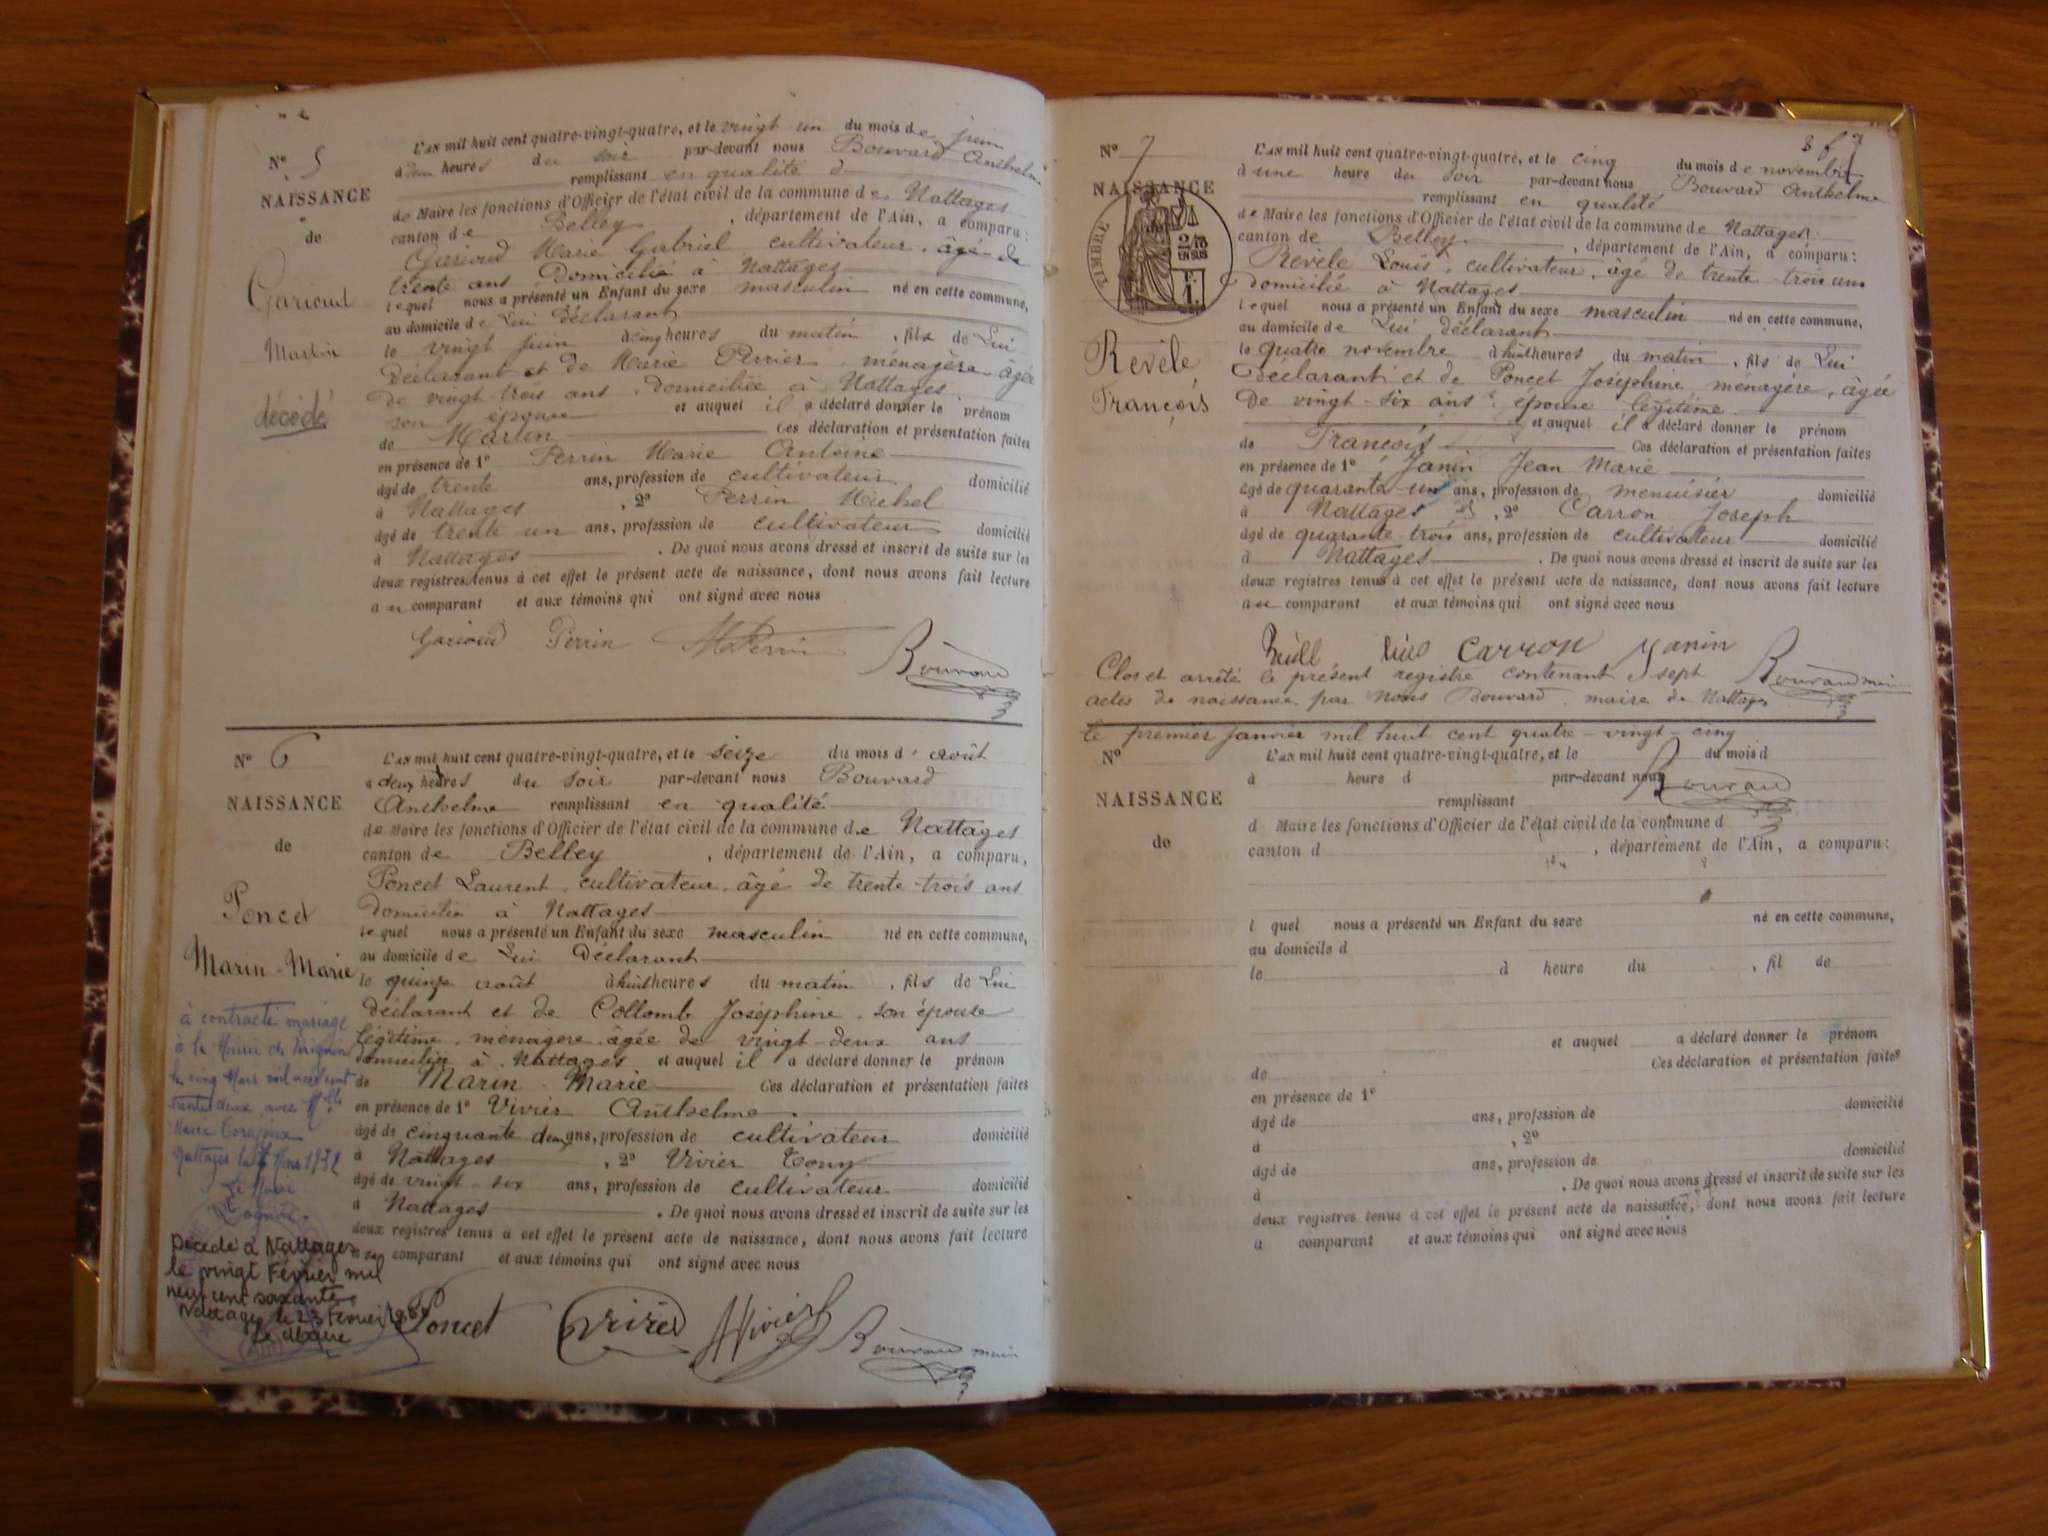 N° 5
NAISSANCE
de
Garioud
Martin
décédé
L'AN mil huit cent quatre-vingt-quatre, et le vingt un du mois de juin
à deux heures du soir par-devant nous Bouvard Anthelme
remplissant en qualité d
de Maire les fonctions d'Officier de l'état civil de la commune de Nattages
canton de Belley, département de l'Ain, a comparu:
Garioud Marie Gabriel cultivateur, âgé de
trente ans, Domicilié à Nattages
lequel nous a présenté un Enfant du sexe masculin né en cette commune,
au domicile de Lui Déclarant
le vingt juin à cinq heures du matin, fils de Lui
Déclarant et de Marie Perrier, ménagère âgée
de vingt-trois ans, Domiciliée à Nattages
son épouse et auquel il a déclaré donner le prénom
de Martin Ces déclaration et présentation faites
en présence de 1° Perrin Marie Antoine
âgé de trente ans, profession de cultivateur domicilié
à Nattages, 2° Perrin Michel
âgé de trente un ans, profession de cultivateur domicilié
à Nattages. De quoi nous avons dressé et inscrit de suite sur les
deux registres tenus à cet effet le présent acte de naissance, dont nous avons fait lecture
au comparant et aux témoins qui ont signé avec nous
Garioud Perrin M Perrin Bouvard
N° 6
NAISSANCE
de
Poncet
Marin-Marie
à contracté mariage
à la Mairie de
le cinq Mars mil neuf cent
trente deux, avec Mlle
Marie
Nattages le Mars 1932
Le Maire
Décédé à Nattages
le vingt Février mil
neuf cent soixante.
Nattages le 23 Février 1960
Le Maire
L'AN mil huit cent quatre-vingt-quatre, et le seize du mois d'août
à deux heures du soir par-devant nous Bouvard
Anthelme remplissant en qualité
de Maire les fonctions d'Officier de l'état civil de la commune de Nattages
canton de Belley, département de l'Ain, a comparu,
Poncet Laurent, cultivateur, âgé de trente-trois ans
Domicilié à Nattages
lequel nous a présenté un Enfant du sexe masculin né en cette commune,
au domicile de Lui Déclarant
le quinze août à huit heures du matin, fils de Lui
déclarant et de Collomb Joséphine, son épouse
légitime, ménagère, âgée de vingt-deux ans
domiciliée à Nattages et auquel il a déclaré donner le prénom
de Marin-Marie Ces déclaration et présentation faites
en présence de 1° Vivier Anthelme.
âgé de cinquante deux ans, profession de cultivateur domicilié
à Nattages, 2° Vivier Tony
âgé de vingt-six ans, profession de cultivateur domicilié
à Nattages. De quoi nous avons dressé et inscrit de suite sur les
deux registres tenus à cet effet le présent acte de naissance, dont nous avons fait lecture
au comparant et aux témoins qui ont signé avec nous
Poncet Vivier A Vivier Bouvard maire
N° 7
NAISSANCE
TIMBRE
2/10
EN SUS
F.
1.
Revèle
François
L'AN mil huit cent quatre-vingt-quatre, et le cinq du mois de novembre
à une heure du soir par-devant nous Bouvard Anthelme
remplissant en qualité
de Maire les fonctions d'Officier de l'état civil de la commune de Nattages
canton de Belley, département de l'Ain, a comparu:
Revèle Louis, cultivateur, âgé de trente-trois ans
domicilié à Nattages
lequel nous a présenté un Enfant du sexe masculin né en cette commune,
au domicile de Lui déclarant
le quatre novembre à huit heures du matin, fils de Lui
déclarant et de Poncet Joséphine ménagère, âgée
de vingt-six ans, épouse légitime
et auquel il a déclaré donner le prénom
de François Ces déclaration et présentation faites
en présence de 1° Janin Jean Marie
âgé de quarante-un ans, profession de menuisier domicilié
à Nattages, 2° Carron Joseph
âgé de quarante trois ans, profession de cultivateur domicilié
à Nattages. De quoi nous avons dressé et inscrit de suite sur les
deux registres tenus à cet effet le présent acte de naissance, dont nous avons fait lecture
au comparant et aux témoins qui ont signé avec nous
Carron Janin Bouvard maire
Clos et arrêté le présent registre contenant sept
actes de naissance par Nous Bouvard maire de Nattages
le premier Janvier mil huit cent quatre-vingt-cinq
Bouvard
N°
NAISSANCE
de
L'AN mil huit cent quatre-vingt-quatre, et le du mois d
à heure d par-devant nous
remplissant
d Maire les fonctions d'Officier de l'état civil de la commune d
canton d, département de l'Ain, a comparu:
l quel nous a présenté un Enfant du sexe né en cette commune,
au domicile d
le à heure du, fil de
et auquel a déclaré donner le prénom
de Ces déclaration et présentation faites
en présence de 1°
âgé de ans, profession de domicilié
à, 2°
âgé de ans, profession de domicilié
à. De quoi nous avons dressé et inscrit de suite sur les
deux registres tenus à cet effet le présent acte de naissance, dont nous avons fait lecture
a comparant et aux témoins qui ont signé avec nous